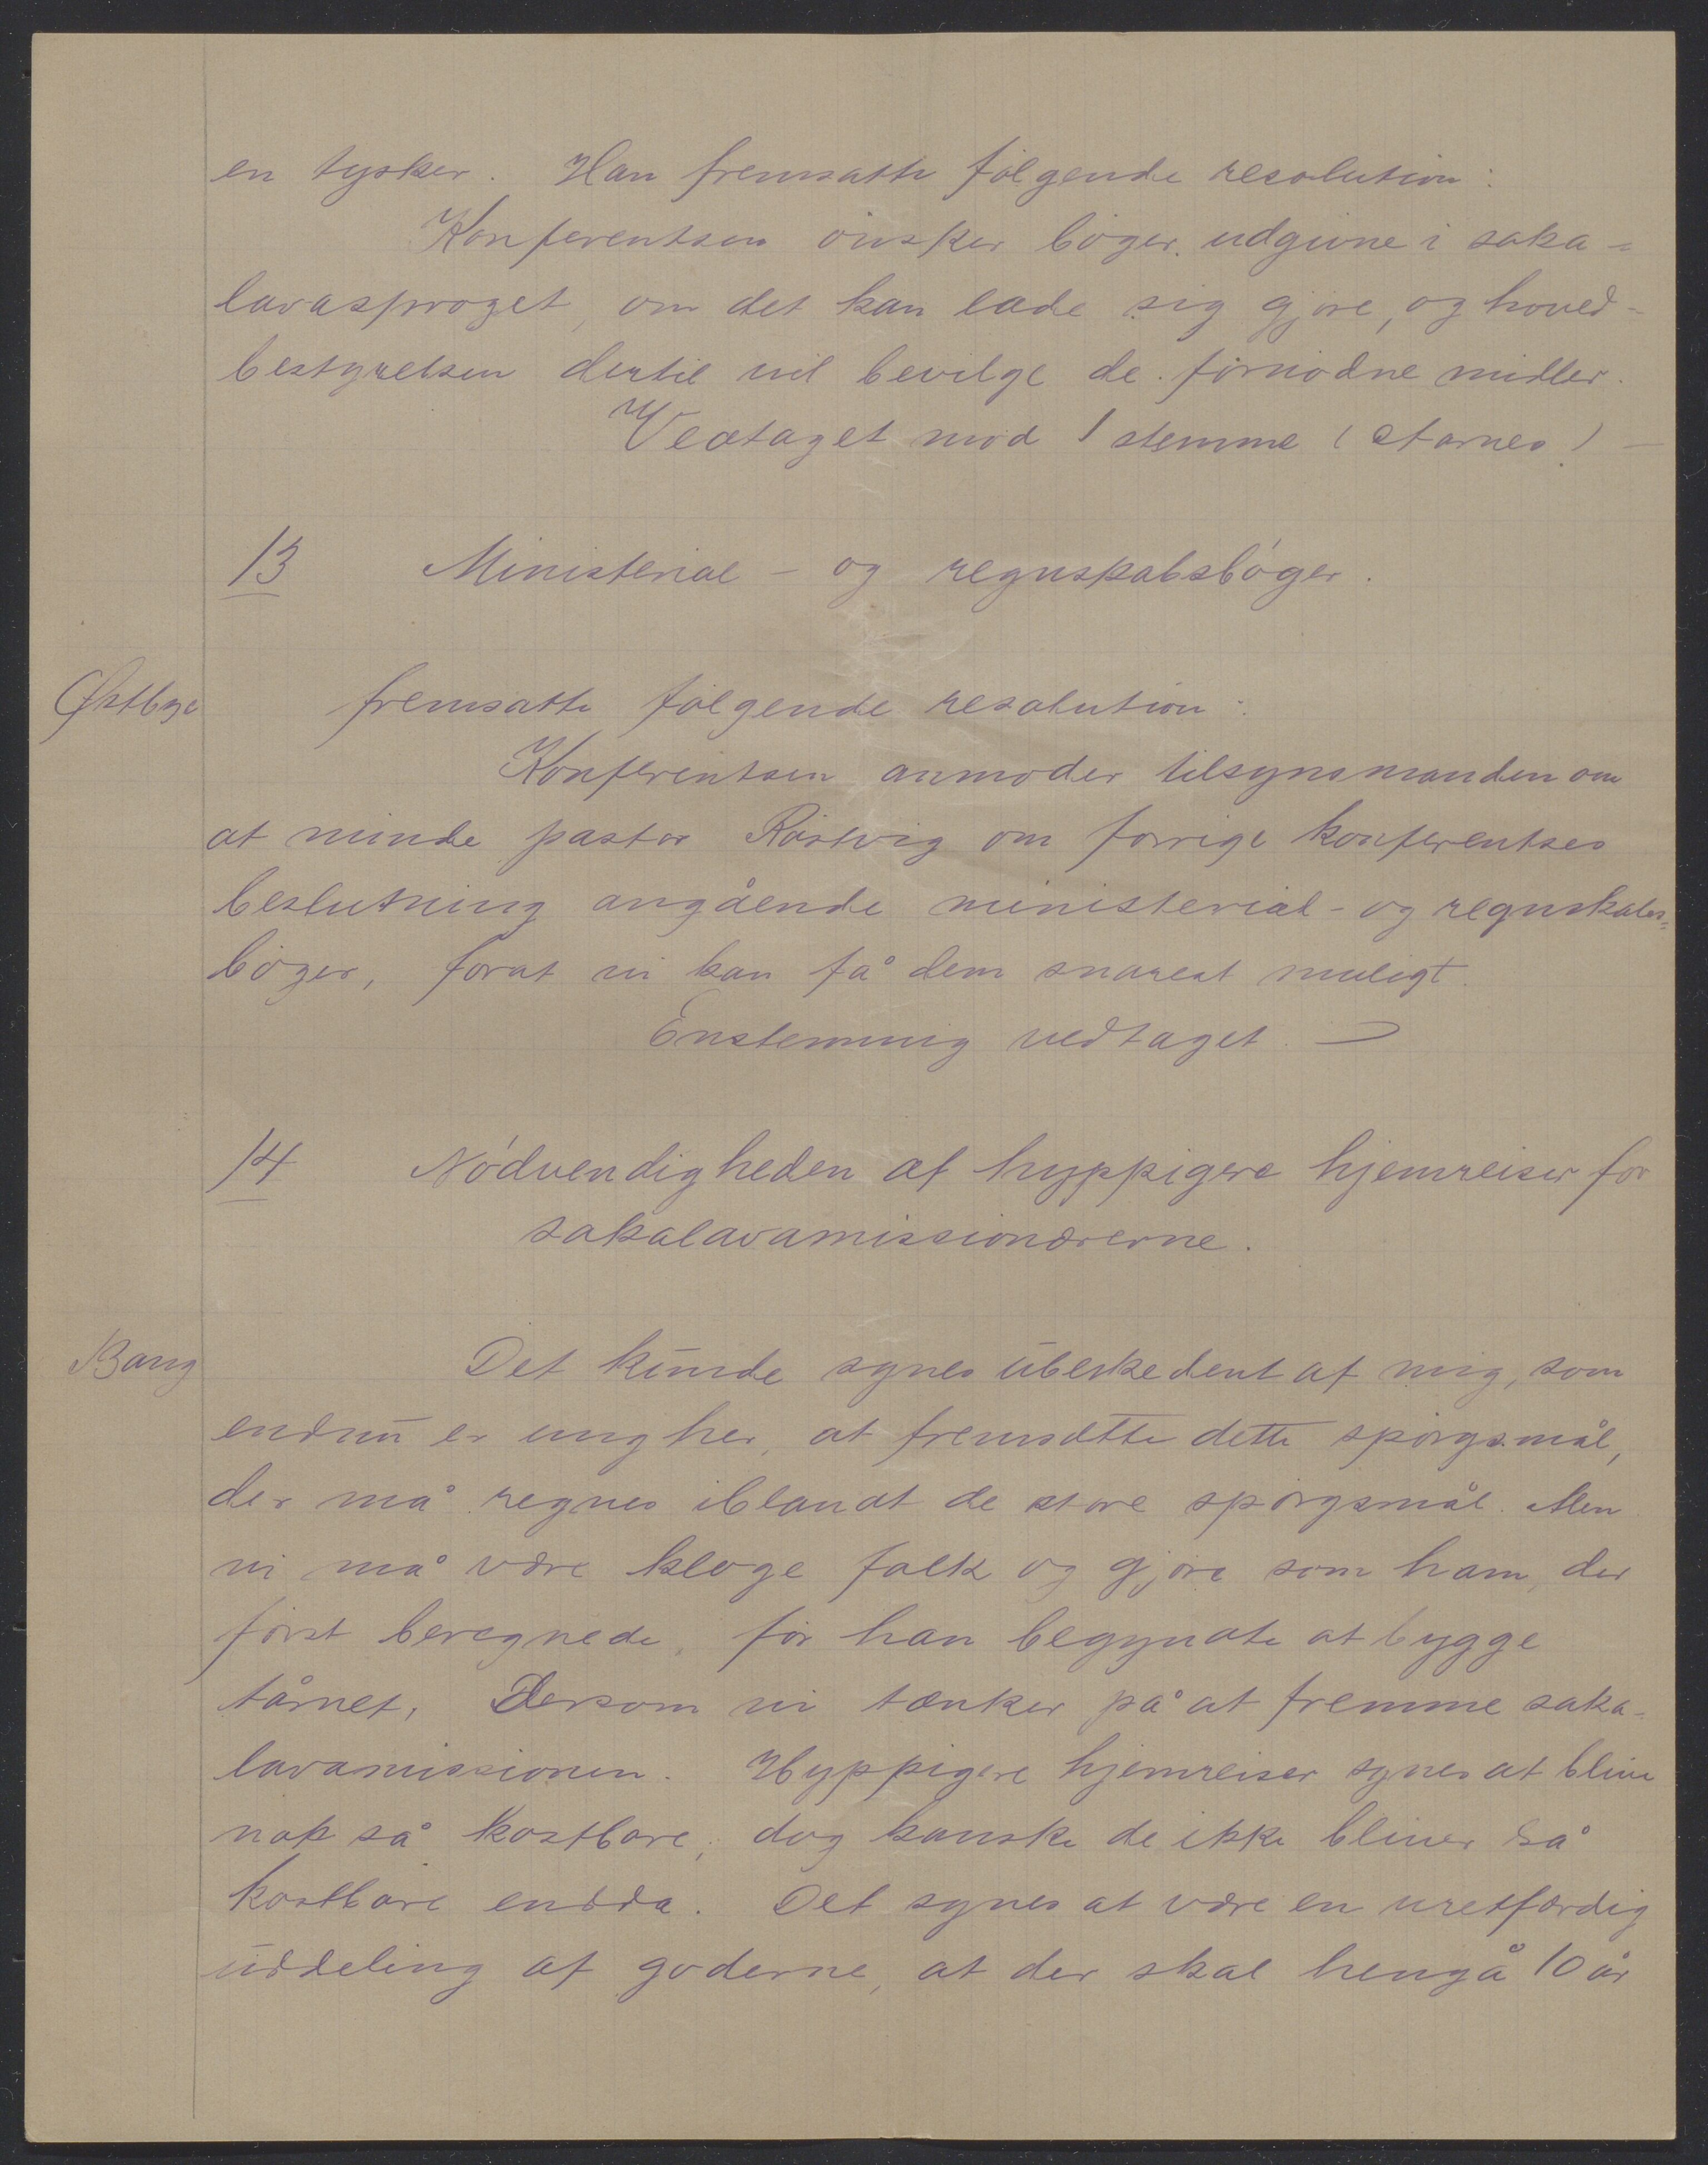 en tysker. Han fremsatte følgende resolution:
Konferentsen ønsker bøger udgivne i saka-
lavasproget, om det kan lade sig gjøre, og hoved-
bestyrelsen dertil vil bevilge de fornødne midler.
Vedtaget mod 1 stemme (Aarnes) —
13 Ministerial- og regnskabsbøger.
Østbye fremsatte følgende resolution:
Konferentsen anmoder tilsynsmanden om
at minde pastor Røstvig om forrige konferentses
beslutning angående ministerial- og regnskabs=
bøger, forat vi kan få dem snarest muligt.
Enstemmig vedtaget. —
14 Nødvendigheden af hyppigere hjemreiser for
sakalavamissionærerne.
Bang Det kunde synes ubeskedent af mig, som
endnu er ung her, at fremsætte dette spørgsmål,
der må regnes iblandt de store spørgsmål. Men
vi må være kloge folk og gjøre som ham, der
først beregnede, før han begyndte at bygge
tårnet, Dersom vi tænker på at fremme saka-
lavamissionen. Hyppigere hjemreiser synes at blive
nok så kostbare; dog kanske de ikke bliver så
kostbare endda. Det synes at være en uretfærdig
uddeling af goderne, at der skal hengå 10 år